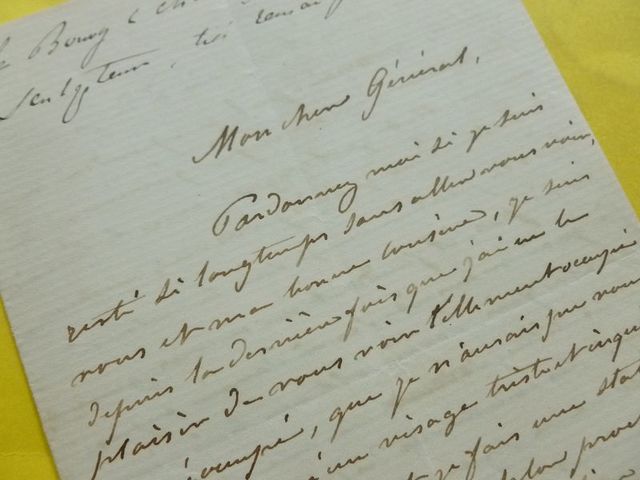 Sculpteur, très
Mon cher Général,
Pardonnez moi si je suis
resté si longtemps sans aller vous voir,
vous et ma bonne cousine, je suis
depuis la dernière fois que j'ai eu le
plaisir de vous voir tellement occupé
, que je n'aurais pu vous
un visage triste et
je fais une